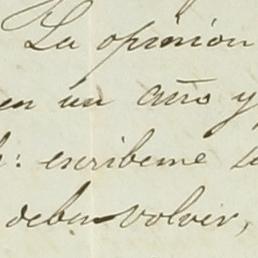 La opinion
en un año y
: escribeme
deben volver,